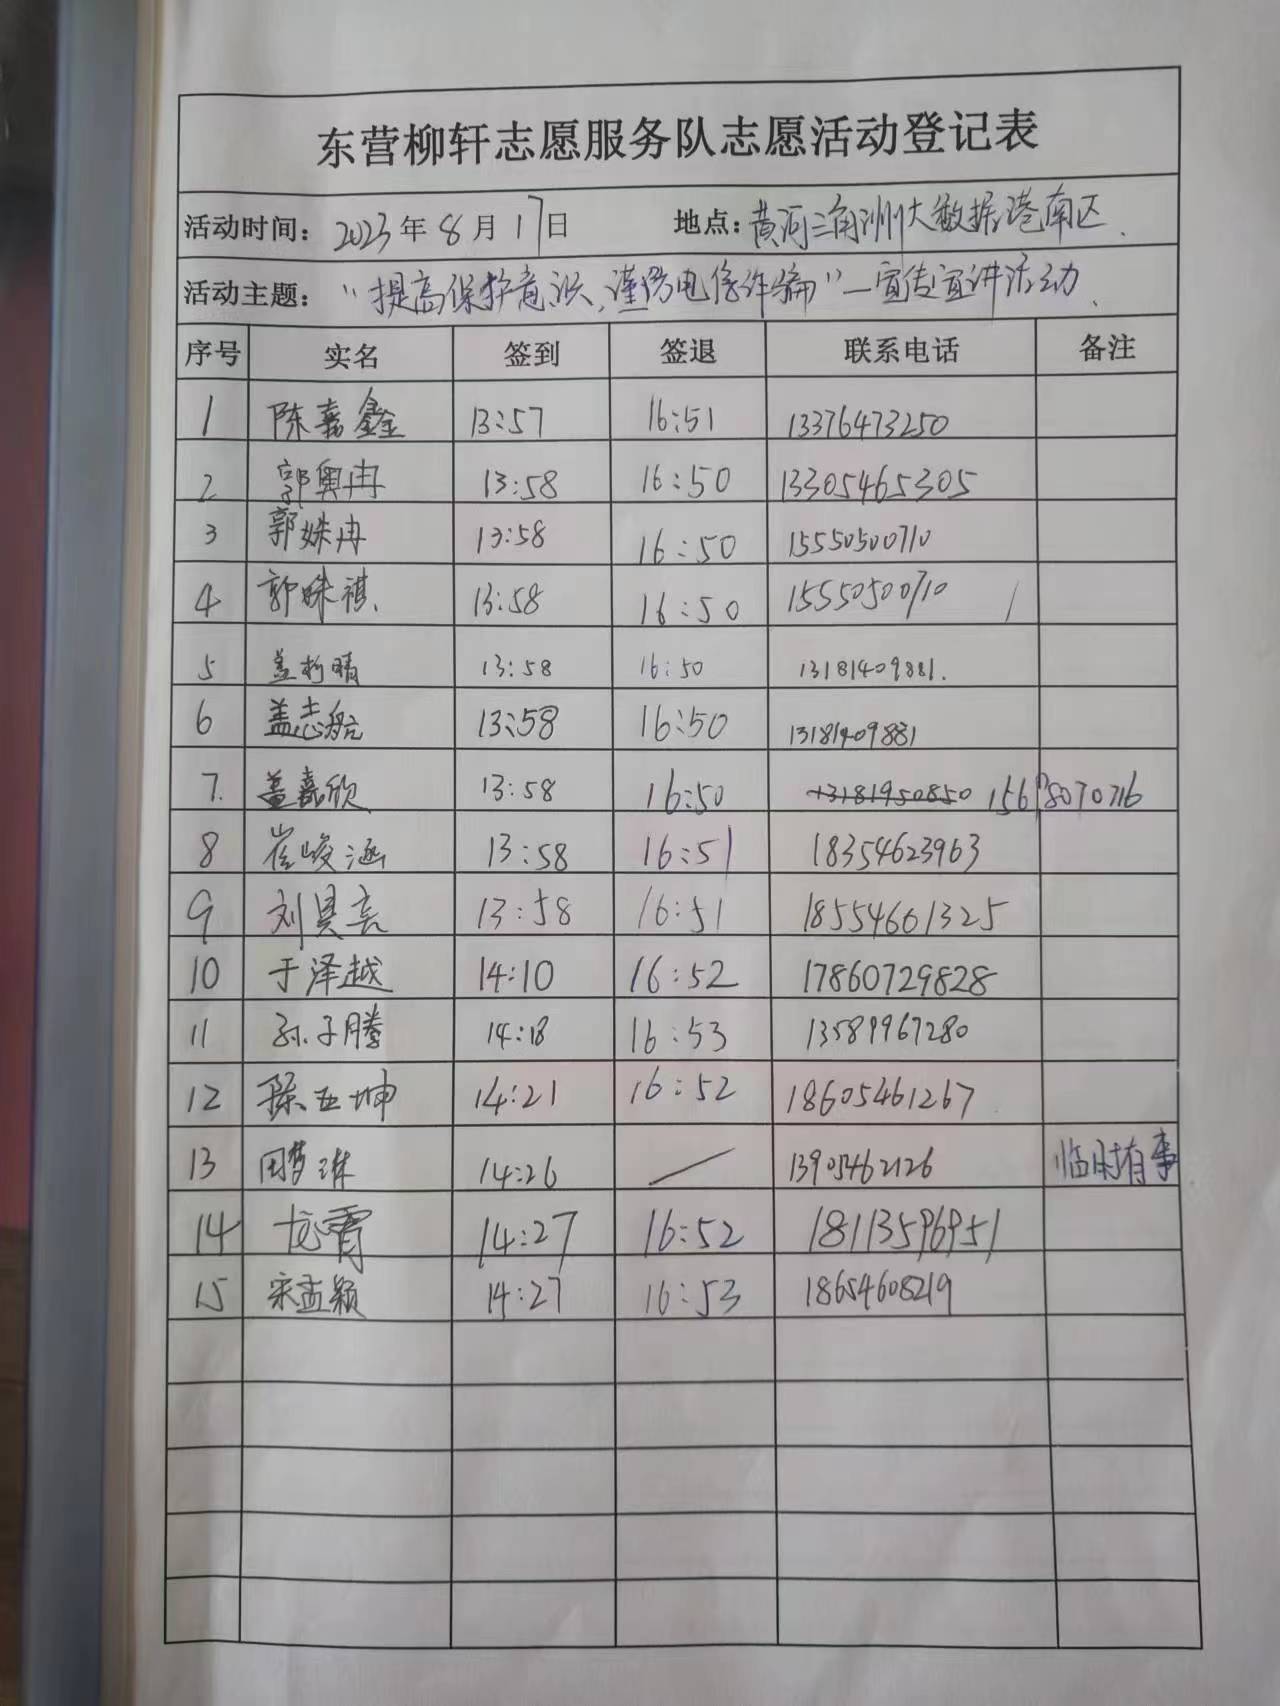 东营柳轩志愿服务队志愿活动登记表
活动时间：2023年8月17日 地点：黄河三角洲大数据港南区.
活动主题：“提高保护意识、谨防电信诈骗”—宣传宣讲活动.
序号 实名 签到 签退 联系电话 备注
1 陈嘉鑫 13:57 16:51 13376473250
2 郭奥冉 13:58 16:50 13305465305
3 郭姝冉 13:58 16:50 15550500710
4 郭姝祺. 13:58 16:50 15550500710
5 盖柯晴 13:58 16:50 13181409881.
6 盖志航 13:58 16:50 13181409881
7. 盖嘉欣 13:58 16:50 13181950850
8 崔峻涵 13:58 16:51 18354623963
9 刘昊亮 13:58 16:51 18554601325
10 于泽越 14:10 16:52 17860729828
11 孙子腾 14:18 16:53 13589967280
12 14:21 16:52 18605461267
13 田梦琳 14:26 13905462126 临时有事
14 龙霄 14:27 16:52 18113596951
15 宋孟颖 14:27 16:53 18654608219